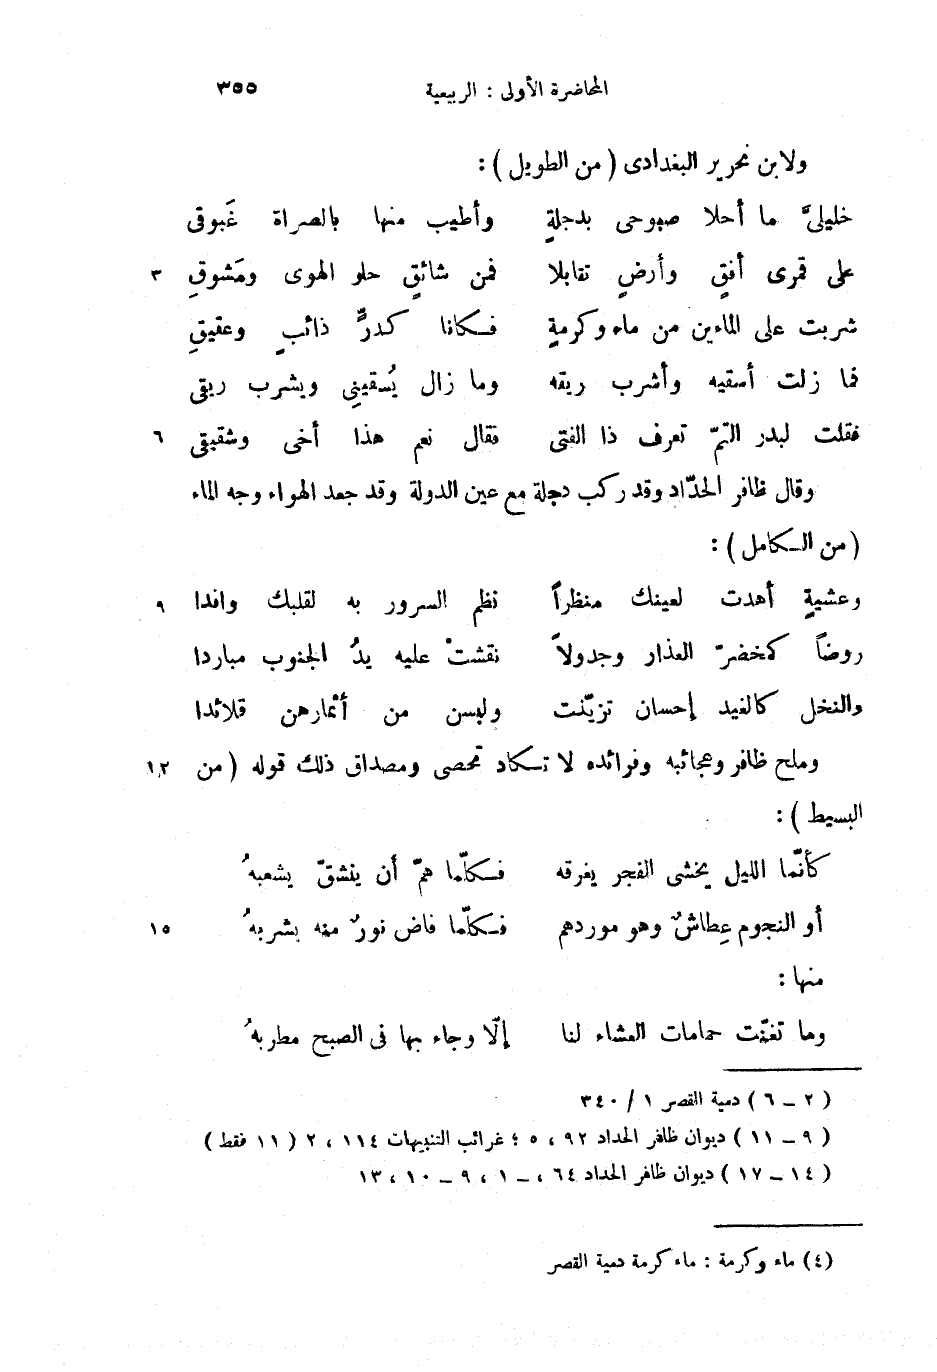 المحاضرة الأولى : الربيعية ٣٥٥
ولابن نحرير البغدادى ( من الطويل ) :
خليلىّ ما أحلا صبوحى بدجلةٍ وأطيب منها بالصراة غَبوقى
على قمرى أفقٍ وأرضٍ تقابلا فمن شائقٍ حلو الهوى ومَشوقِ ٣
شربت على الماءين من ماء وكرمةٍ فكانا كدرٍّ ذائبٍ وعقيقِ
فما زلت أسقيه وأشرب ريقه وما زال يُسقينِى ويشرب ريقى
فقلت لبدر التمّ تعرف ذا الفتى فقال نعم هذا أخى وشقيقى ٦
وقال ظافر الحدّاد وقد ركب دجلة مع عين الدولة وقد جعد الهواء وجه الماء
( من الكامل ) :
وعشيةٍ أهدت لعينك منظراً نظم السرور به لقلبك وافدا ٩
روضاً كمخضرّ العذار وجدولاً نقشتْ عليه يدُ الجنوب مباردا
والنخل كالغيد إحسان تزيّنت ولبسن من أثمارهن قلائدا
وملح ظافر وعجائبه وفرائده لا تكاد تحصى ومصداق ذلك قوله ( من ١٢
البسيط ) :
كأنّما الليل يخشى الفجر يغرقه فكلّما همّ أن ينشقّ يشعبهُ
أو النجوم عِطاشٌ وهو موردهم فكلّما فاض نورٌ منه بشربهُ ١٥
منها :
وما تغنّت حمامات العشاء لنا إلّا وجاء بها فى الصبح مطربهُ
( ٢ – ٦ ) دمية القصر ١ / ٣٤٠
( ٩ – ١١ ) ديوان ظافر الحداد ٩٢ ، ٥ ؛ غرائب التنبيهات ١١٤ ، ٢ ( ١١ فقط )
( ١٤ – ١٧ ) ديوان ظافر الحداد ٦٤ ، – ١ ، ٩ – ١٠ ، ١٣
(٤) ماء وكرمة : ماء كرمة دمية القصر